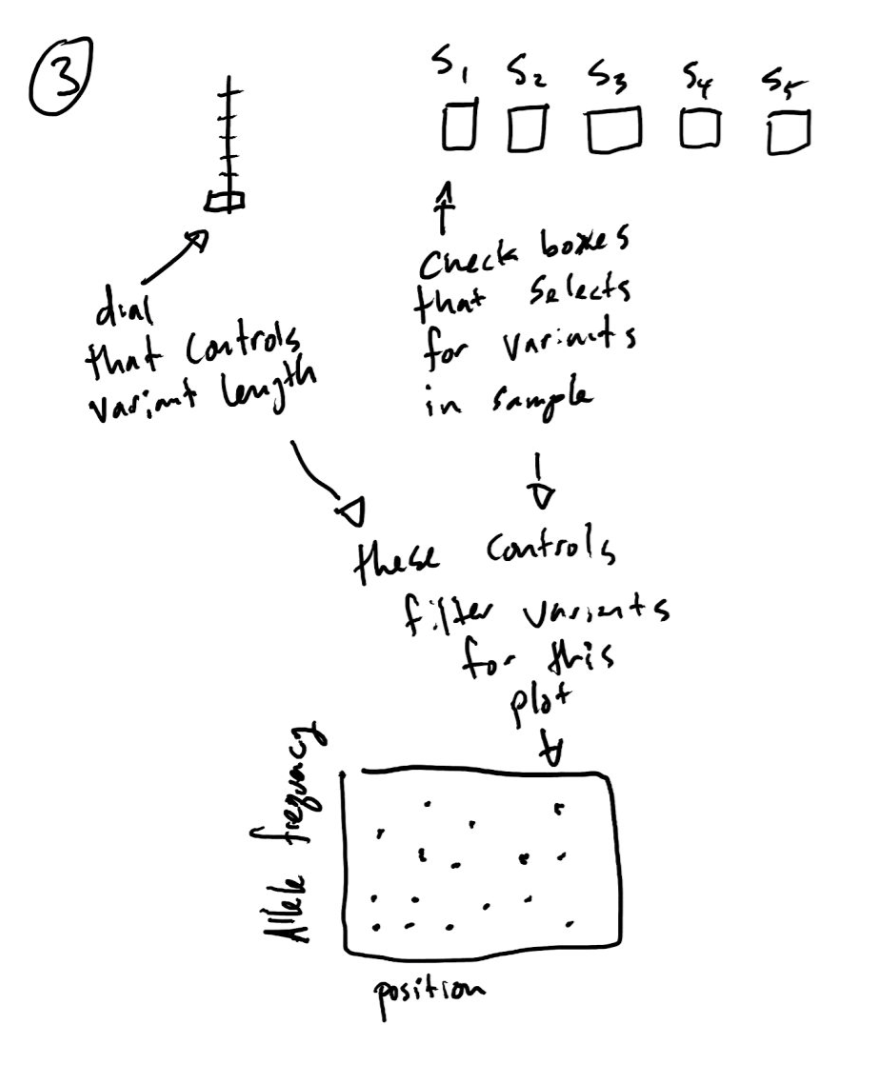 3
S1 S2 S3 S4 S5
dial
that controls
variant length
Check boxes
that selects
for variants
in sample
these controls
filter variants
for this
plot
Allele frequency
position